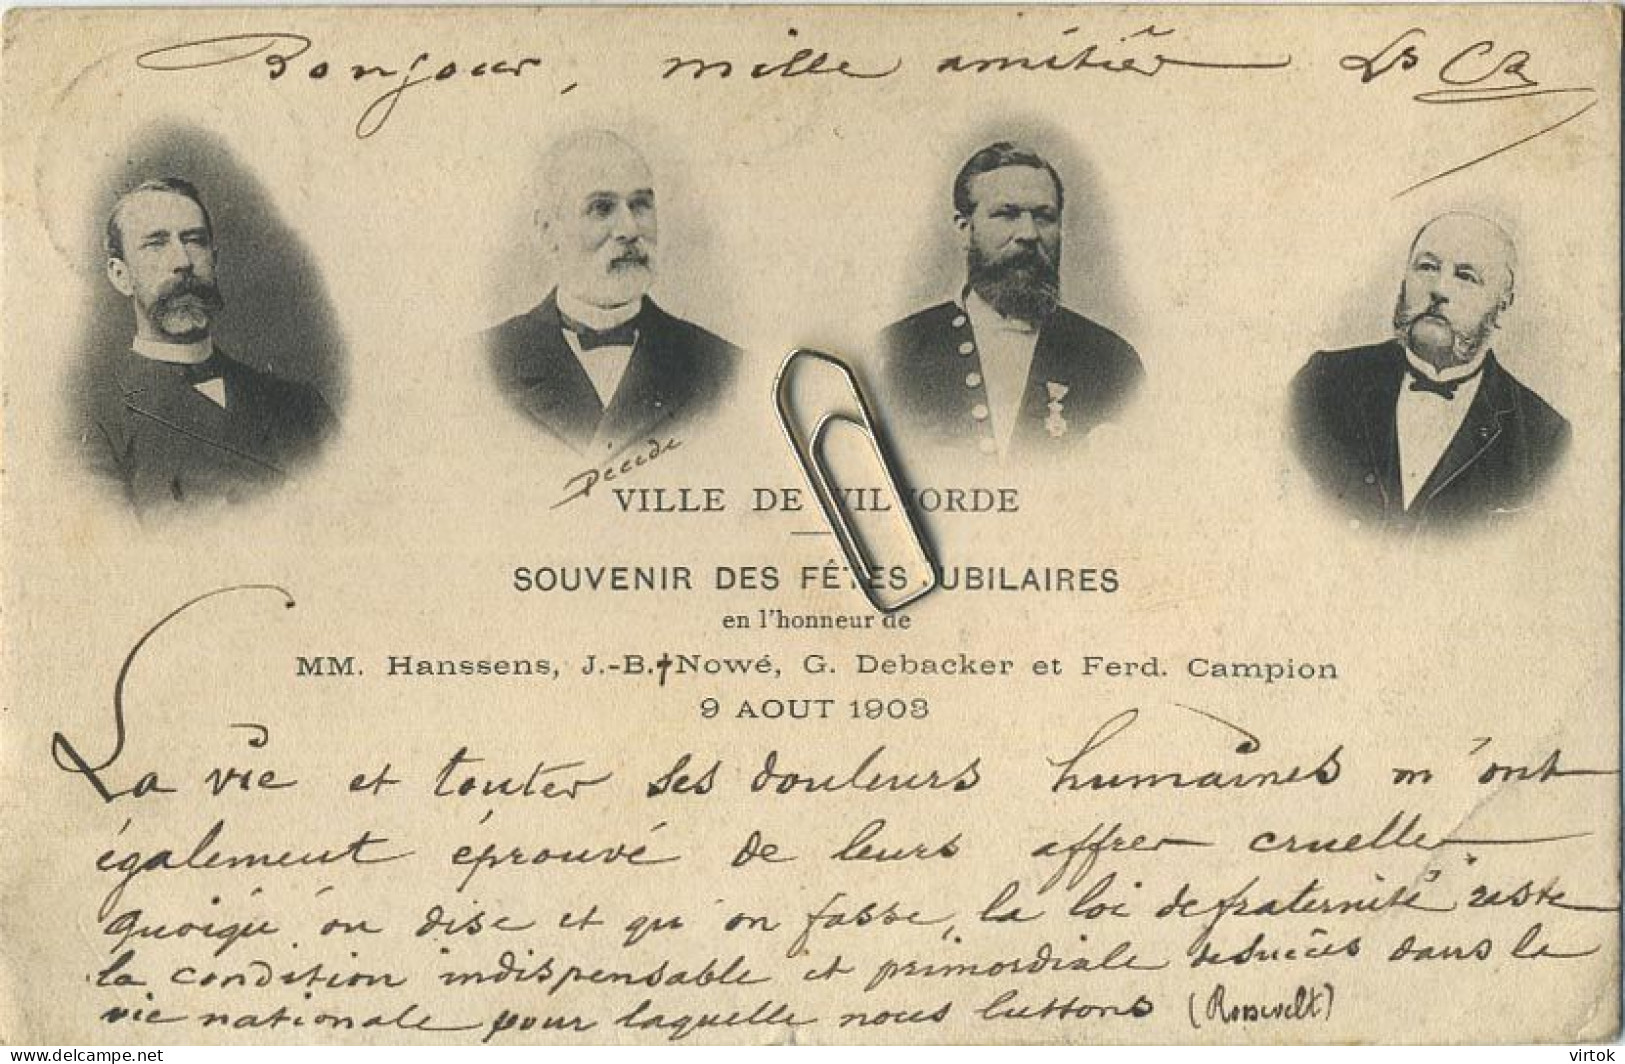 Bonjour, mille amitiés Ls
Décédé
VILLE DE VILVORDE
SOUVENIR DES FÊTES JUBILAIRES
en l'honneur de
MM. Hanssens, J.-B. † Nowé, G. Debacker et Ferd. Campion
9 AOUT 1903
La vie et toutes ses douleurs humaines m'ont
également éprouvé de leurs affres cruelles
quoiqu'on dise et qu'on fasse, la loi de fraternité reste
la condition indispensable et primordiale de succès dans la
vie nationale pour laquelle nous luttons (Roosevelt)
virtok
delcampe.net